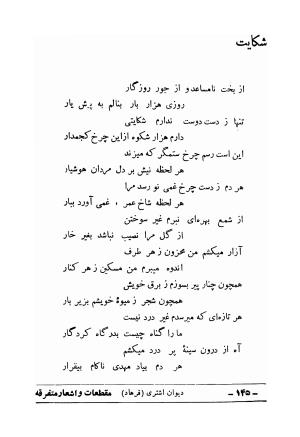 شکایت
از بخت نامساعد و از جور روزگار
روزی هزار بار بنالم به پیش یار
تنها ز دست دوست ندارم شکایتی
دارم هزار شکوه ازاین چرخ کجمدار
این است رسم چرخ ستمگر که میزند
هر لحظه نیش بر دل مردان هوشیار
هر دم ز دست چرخ غمی نو رسد مرا
هر لحظه شاخ عمر ، غمی آورد ببار
از شمع بهره‌ای نبرم غیر سوختن
از گل مرا نصیب نباشد بغیر خار
آزار میکشم من محزون ز هر طرف
اندوه میبرم من مسکین ز هر کنار
همچون چنار پیر بسوزم ز برق خویش
همچون شجر ز میوهٔ خویشم بزیر بار
هر تازه‌ای که میرسدم غیر درد نیست
ما را گناه چیست بدرگاه کردگار
آه از درون سینهٔ پر درد میکشم
هر دم بیاد مهدی ناکام بیقرار
دیوان اشتری (فرهاد) مقطعات و اشعار متفرقه
- ۱۴۵ -